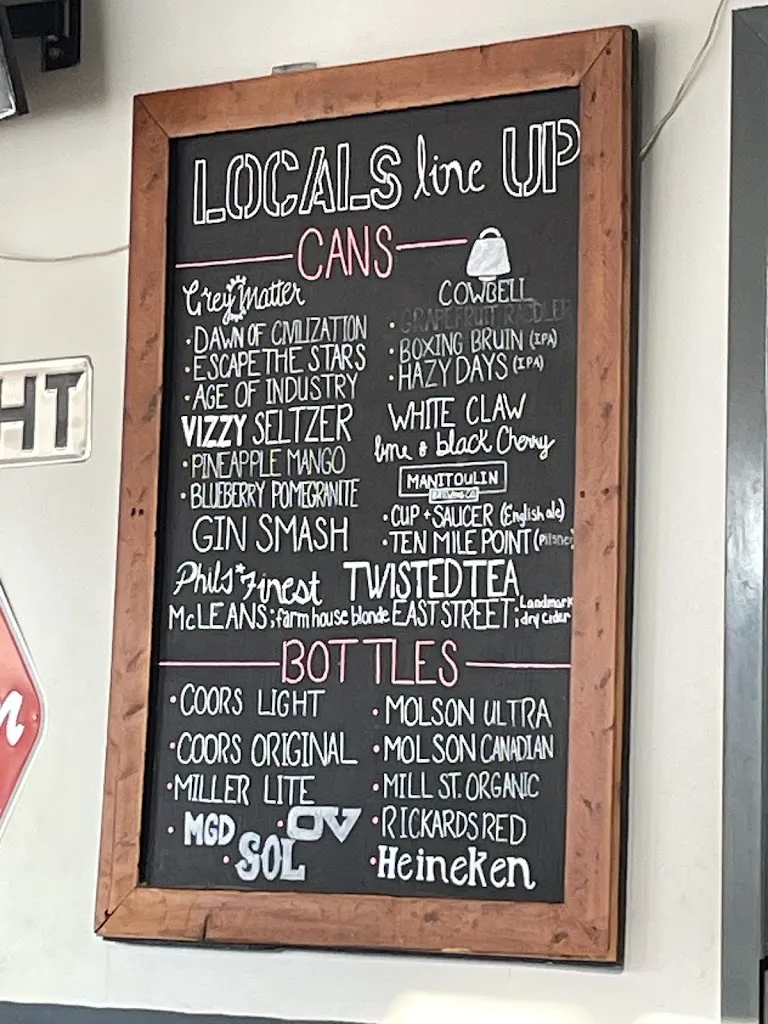 HT
n
LOCALS line UP
CANS
Grey Matter
• DAWN OF CIVILIZATION
• ESCAPE THE STARS
• AGE OF INDUSTRY
VIZZY SELTZER
• PINEAPPLE MANGO
• BLUEBERRY POMEGRANITE
GIN SMASH
COWBELL
• GRAPEFRUIT RADDLER
• BOXING BRUIN (IPA)
• HAZY DAYS (IPA)
WHITE CLAW
lime & black Cherry
MANITOULIN
BREWING CO.
• CUP + SAUCER (English ale)
• TEN MILE POINT (Pilsner)
Phils' Finest TWISTED TEA
McLEANS; farm house blonde EAST STREET; Landmark dry cider
BOTTLES
• COORS LIGHT
• COORS ORIGINAL
• MILLER LITE
• MGD
• OV
• SOL
• MOLSON ULTRA
• MOLSON CANADIAN
• MILL ST. ORGANIC
• RICKARDS RED
• Heineken